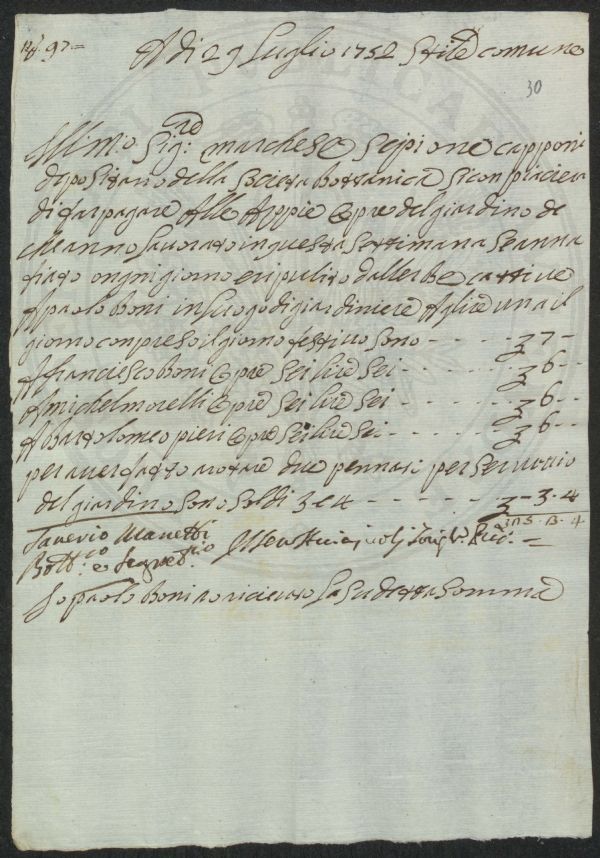 N° 97=
A di 29 Luglio 1752 Stile comune
30
Ill:mo Sig:re marchese Scipione capponi
dipositario della Societa bottanica Si conpiacera
di far pagare Alle Appie Opre del giardino che
Anno lavorato in questa Settimana e Anna
fiato ongni giorno e ripulito dallerbe cattive
A paolo boni in luogo di giardiniere A glire una il
giorno conpreso il giorno festivo sono - - - - - 7 -
A franciesco boni Opre Sei lire Sei - - - - - 6 -
A michel morelli Opre Sei lire Sei - - - - - 6 -
A bartolomeo pieri Opre Sei lire Sei - - - - - 6 -
per aver fatto arotare due pennati per Servizio
del giardino Sono Soldi 3 e 4 - - - - - - 3 . 4
Saverio Manetti 25 . 3 . 4
Bott:co e Segret:rio
Io paolo boni o ricieuto La Sudetta Somma